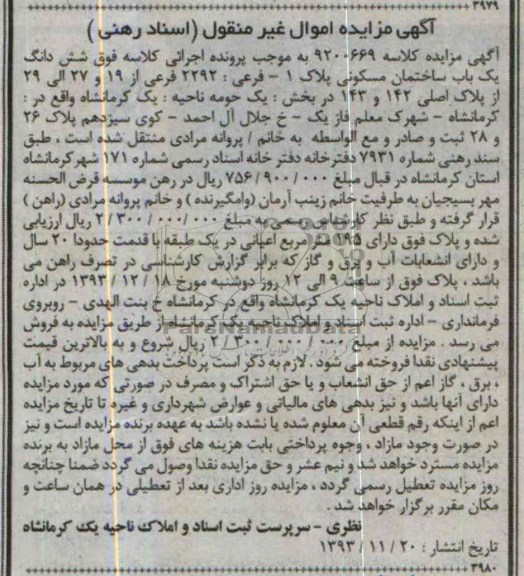 ۳۹۷۹
آگهی مزایده اموال غیر منقول (اسناد رهنی)
آگهی مزایده کلاسه ۹۲۰۰۶۶۹ به موجب پرونده اجرائی کلاسه فوق شش دانگ
یک باب ساختمان مسکونی پلاک ۱ - فرعی : ۲۲۹۲ فرعی از ۱۹ و ۲۷ الی ۲۹
از پلاک اصلی ۱۴۲ و ۱۴۳ در بخش : یک حومه ناحیه : یک کرمانشاه واقع در :
کرمانشاه - شهرک معلم فاز یک - خ جلال آل احمد - کوی سیزدهم پلاک ۲۶
و ۲۸ ثبت و صادر و مع الواسطه به خانم / پروانه مرادی منتقل شده است ، طبق
سند رهنی شماره ۷۹۳۱ دفترخانه دفتر خانه اسناد رسمی شماره ۱۷۱ شهر کرمانشاه
استان کرمانشاه در قبال مبلغ ۷۵۶/۹۰۰/۰۰۰ ریال در رهن موسسه قرض الحسنه
مهر بسیجیان به ظرفیت خانم زینب آرمان (وامگیرنده) و خانم پروانه مرادی (راهن)
قرار گرفته و طبق نظر کارشناس رسمی به مبلغ ۲/۳۰۰/۰۰۰/۰۰۰ ریال ارزیابی
شده و پلاک فوق دارای ۱۹۵ متر مربع اعیانی در یک طبقه با قدمت حدودا ۲۰ سال
و دارای انشعابات آب و برق و گاز که برابر گزارش کارشناسی در تصرف راهن می
باشد ، پلاک فوق از ساعت ۹ الی ۱۲ روز دوشنبه مورخ ۱۸/۱۲/۱۳۹۳ در اداره
ثبت اسناد و املاک ناحیه یک کرمانشاه واقع در کرمانشاه خ بنت الهدی - روبروی
فرمانداری - اداره ثبت اسناد و املاک ناحیه یک کرمانشاه از طریق مزایده به فروش
می رسد . مزایده از مبلغ ۲/۳۰۰/۰۰۰/۰۰۰ ریال شروع و به بالاترین قیمت
پیشنهادی نقدا فروخته می شود . لازم به ذکر است پرداخت بدهی های مربوط به آب
، برق ، گاز اعم از حق انشعاب و یا حق اشتراک و مصرف در صورتی که مورد مزایده
دارای آنها باشد و نیز بدهی های مالیاتی و عوارض شهرداری و غیره تا تاریخ مزایده
اعم از اینکه رقم قطعی آن معلوم شده یا نشده باشد به عهده برنده مزایده است و نیز
در صورت وجود مازاد ، وجوه پرداختی بابت هزینه های فوق از محل مازاد به برنده
مزایده مسترد خواهد شد و نیم عشر و حق مزایده نقدا وصول می گردد ضمنا چنانچه
روز مزایده تعطیل رسمی گردد ، مزایده روز اداری بعد از تعطیلی در همان ساعت و
مکان مقرر برگزار خواهد شد .
نظری - سرپرست ثبت اسناد و املاک ناحیه یک کرمانشاه
تاریخ انتشار : ۲۰/۱۱/۱۳۹۳
۳۹۸۰